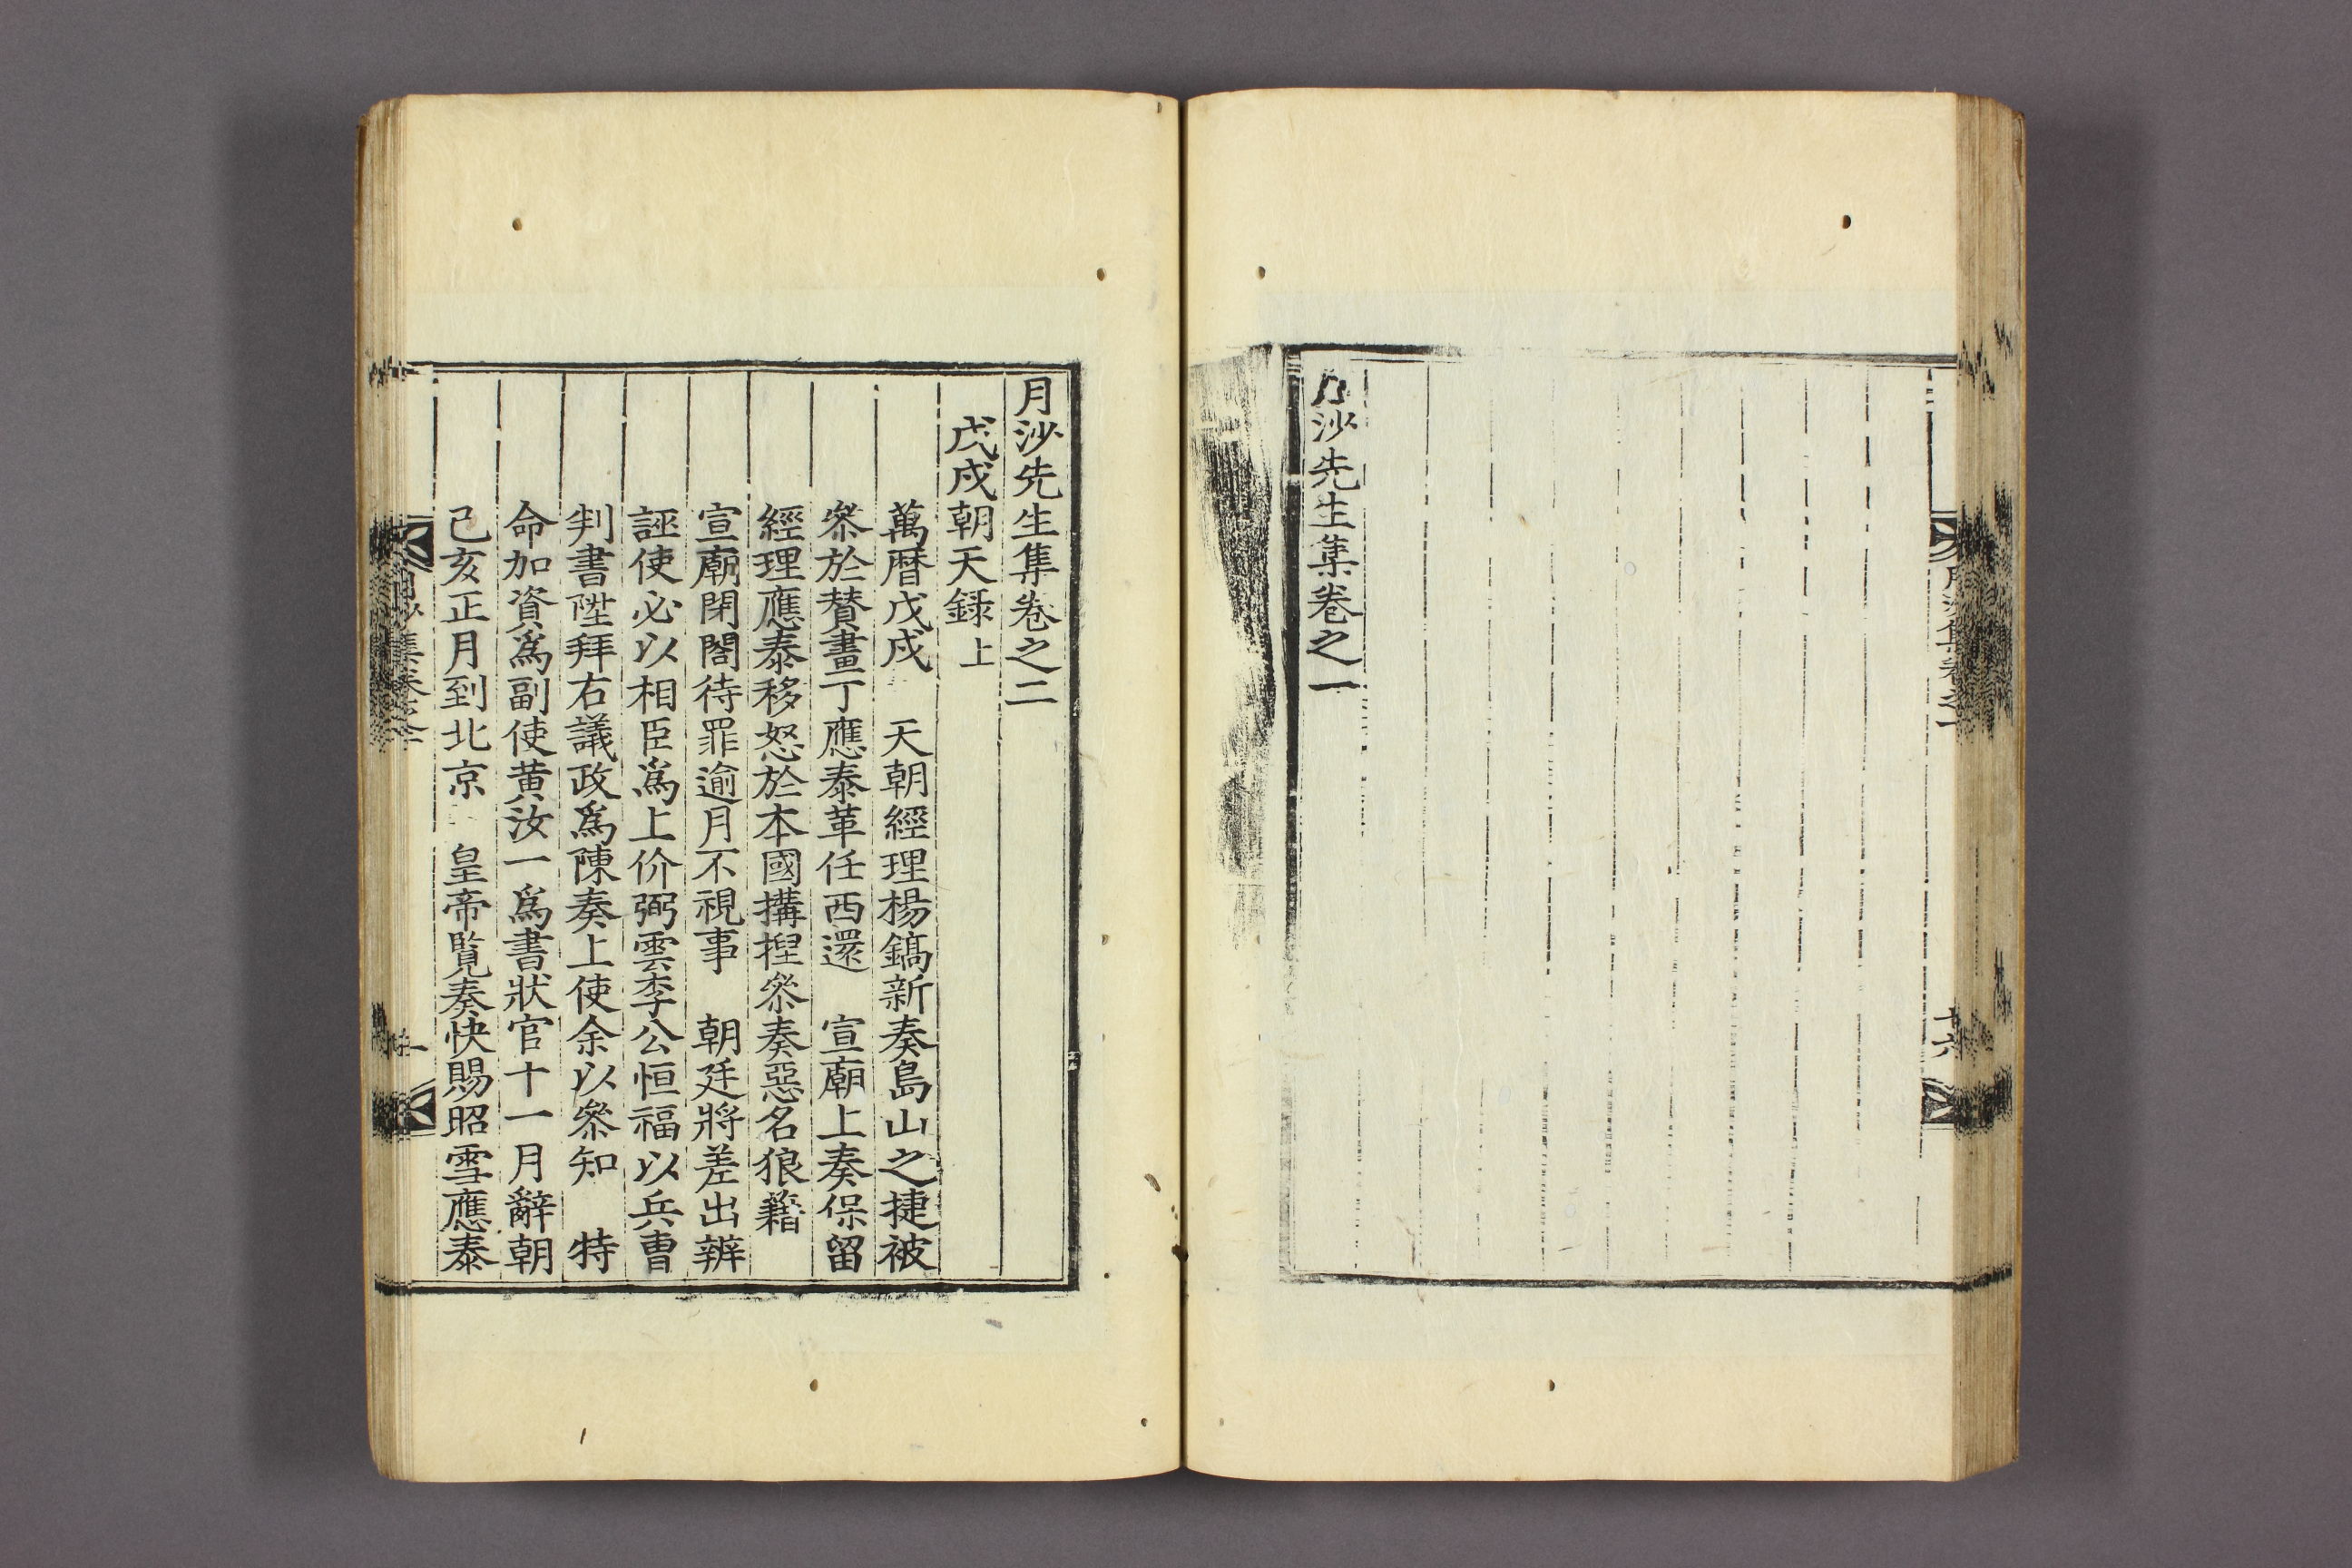 月沙先生集卷之一
月沙先生集卷之二
戊戌朝天録上
萬曆戊戌　天朝經理楊鎬新奏島山之捷被
叅於贊畫丁應泰革任西還　宣廟上奏保留
經理應泰移怒於本國搆揑叅奏惡名狼藉
宣廟閉閤待罪逾月不視事　朝廷將差出辨
誣使必以相臣爲上价弼雲李公恒福以兵曹
判書陞拜右議政爲陳奏上使余以叅知　特
命加資爲副使黄汝一爲書狀官十一月辭朝
己亥正月到北京　皇帝覽奏快賜昭雪應泰